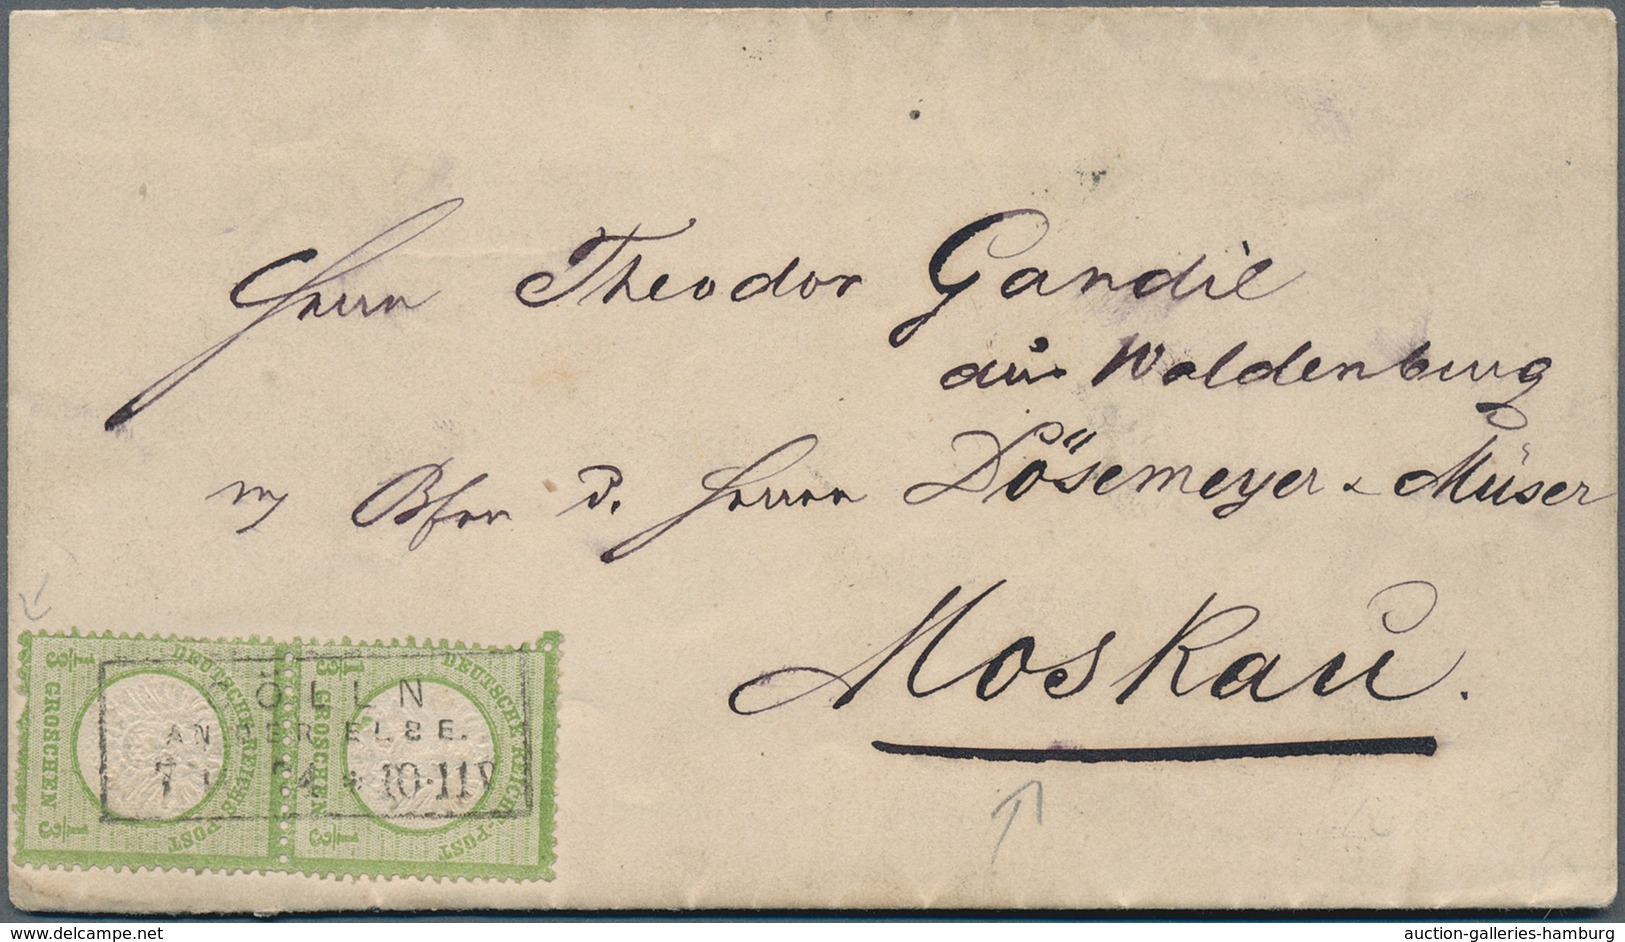 Herrn Theodor Gandil
aus Waldenburg
Adr. d. Herren Dösemeyer & Müser
Moskau.
DEUTSCHE REICHS-POST
1/3 GROSCHEN 1/3
DEUTSCHE REICHS-POST
1/3 GROSCHEN 1/3
ÖLLN
AN DER ELBE.
7 74 * 10-11V
delcampe.net
auction-galleries-hamburg